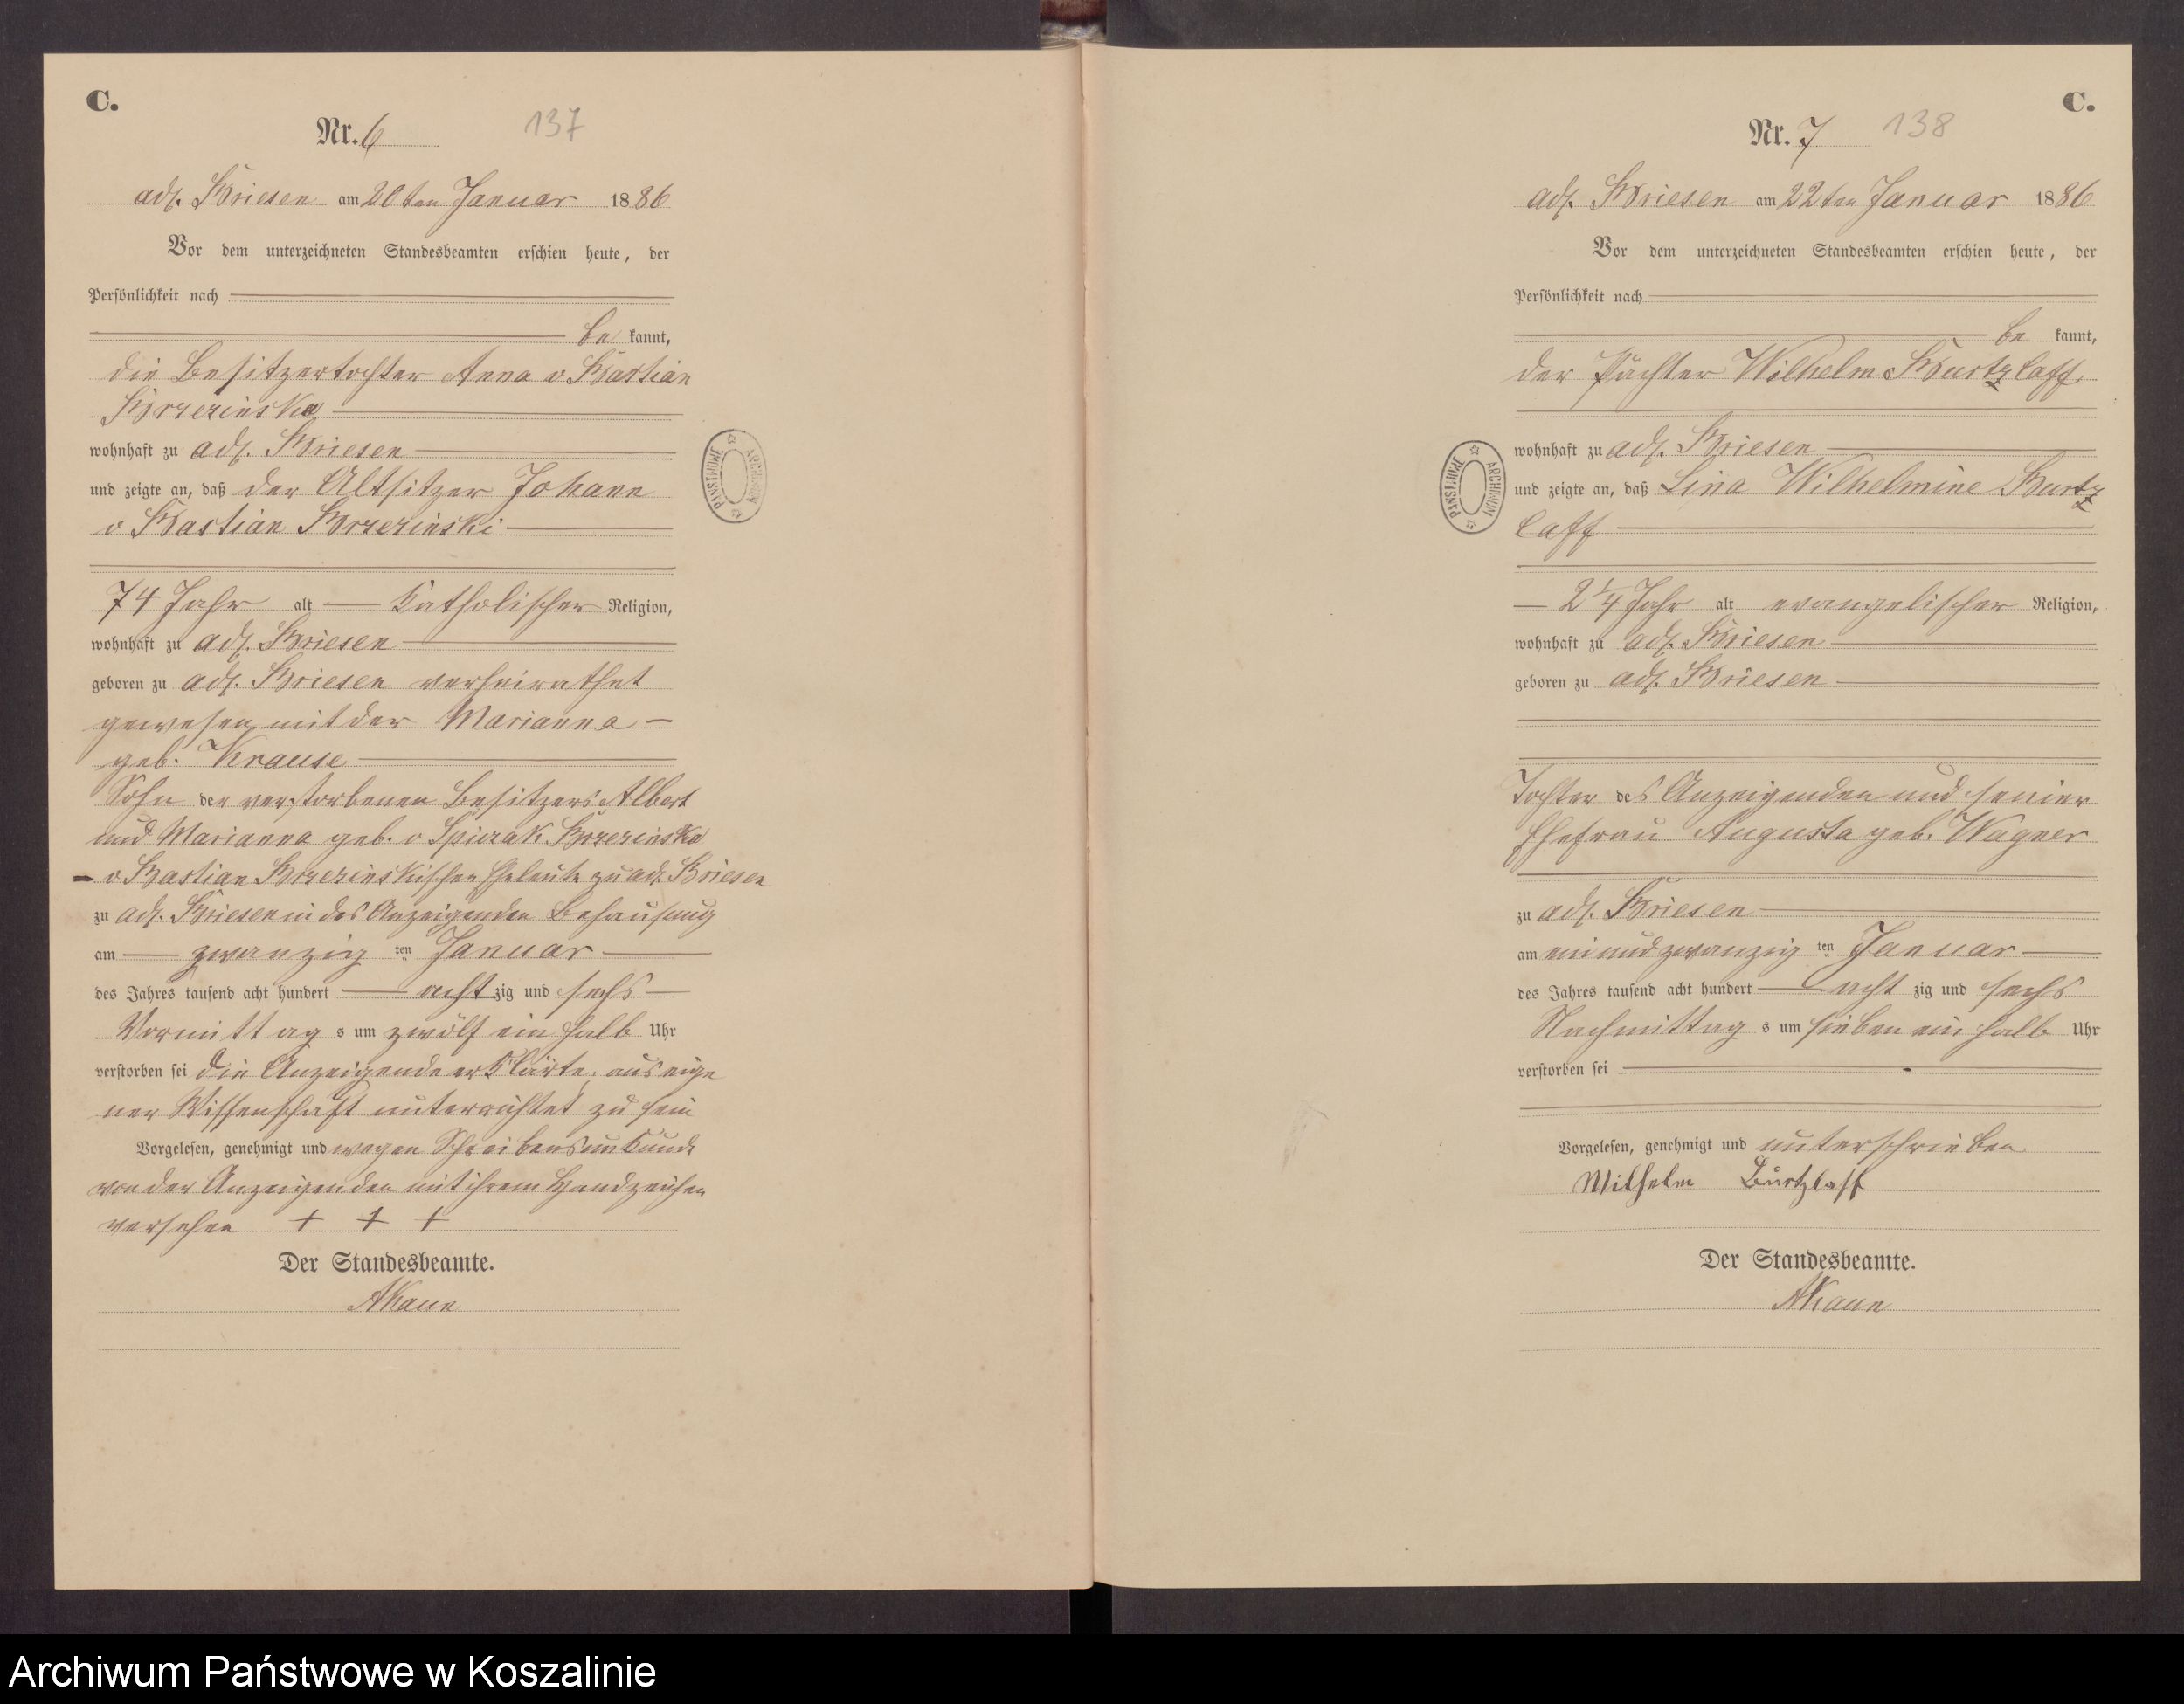 C.
Nr. 6 137
adl. Briesen am 20ten Januar 1886
Vor dem unterzeichneten Standesbeamten erschien heute, der
Persönlichkeit nach
be kannt,
die Besitzertochter Anna v Bastian
Brzezinska
wohnhaft zu adl. Briesen
und zeigte an, daß der Altsitzer Johann
v Bastian Brzezinski
74 Jahr alt Katholischer Religion,
wohnhaft zu adl. Briesen
geboren zu adl. Briesen verheirathet
gewesen mit der Marianna
geb. Krause
Sohn der verstorbenen Besitzers Albert
und Marianna geb. v Spiczak Brzezinska
v Bastian Brzezinskischen Eheleute zu adl. Briesen
zu adl. Briesen in des Anzeigenden Behausung
am zwanzig ten Januar
des Jahres tausend acht hundert acht zig und sechs
Vormittag s um zwölf ein halb Uhr
verstorben sei die Anzeigende erklärte, aus eige
ner Wissenschaft unterrichtet zu sein
Vorgelesen, genehmigt und wegen Schreibensunkunde
von der Anzeigenden mit ihrem Handzeichen
versehen + + +
Der Standesbeamte.
AKaun
ARCHIWUM PAŃSTWOWE
C.
Nr. 7 138
adl. Briesen am 22ten Januar 1886
Vor dem unterzeichneten Standesbeamten erschien heute, der
Persönlichkeit nach
be kannt,
der Pächter Wilhelm Burtzlaff
wohnhaft zu adl. Briesen
und zeigte an, daß Lina Wilhelmine Burtz
laff
2 1/4 Jahr alt evangelischer Religion,
wohnhaft zu adl. Briesen
geboren zu adl. Briesen
Tochter des Anzeigenden und seiner
Ehefrau Augusta geb. Wagner
zu adl. Briesen
am einundzwanzig ten Januar
des Jahres tausend acht hundert acht zig und sechs
Nachmittag s um sieben ein halb Uhr
verstorben sei
Vorgelesen, genehmigt und unterschrieben
Wilhelm Burtzlaff
Der Standesbeamte.
AKaun
ARCHIWUM PAŃSTWOWE
Archiwum Państwowe w Koszalinie